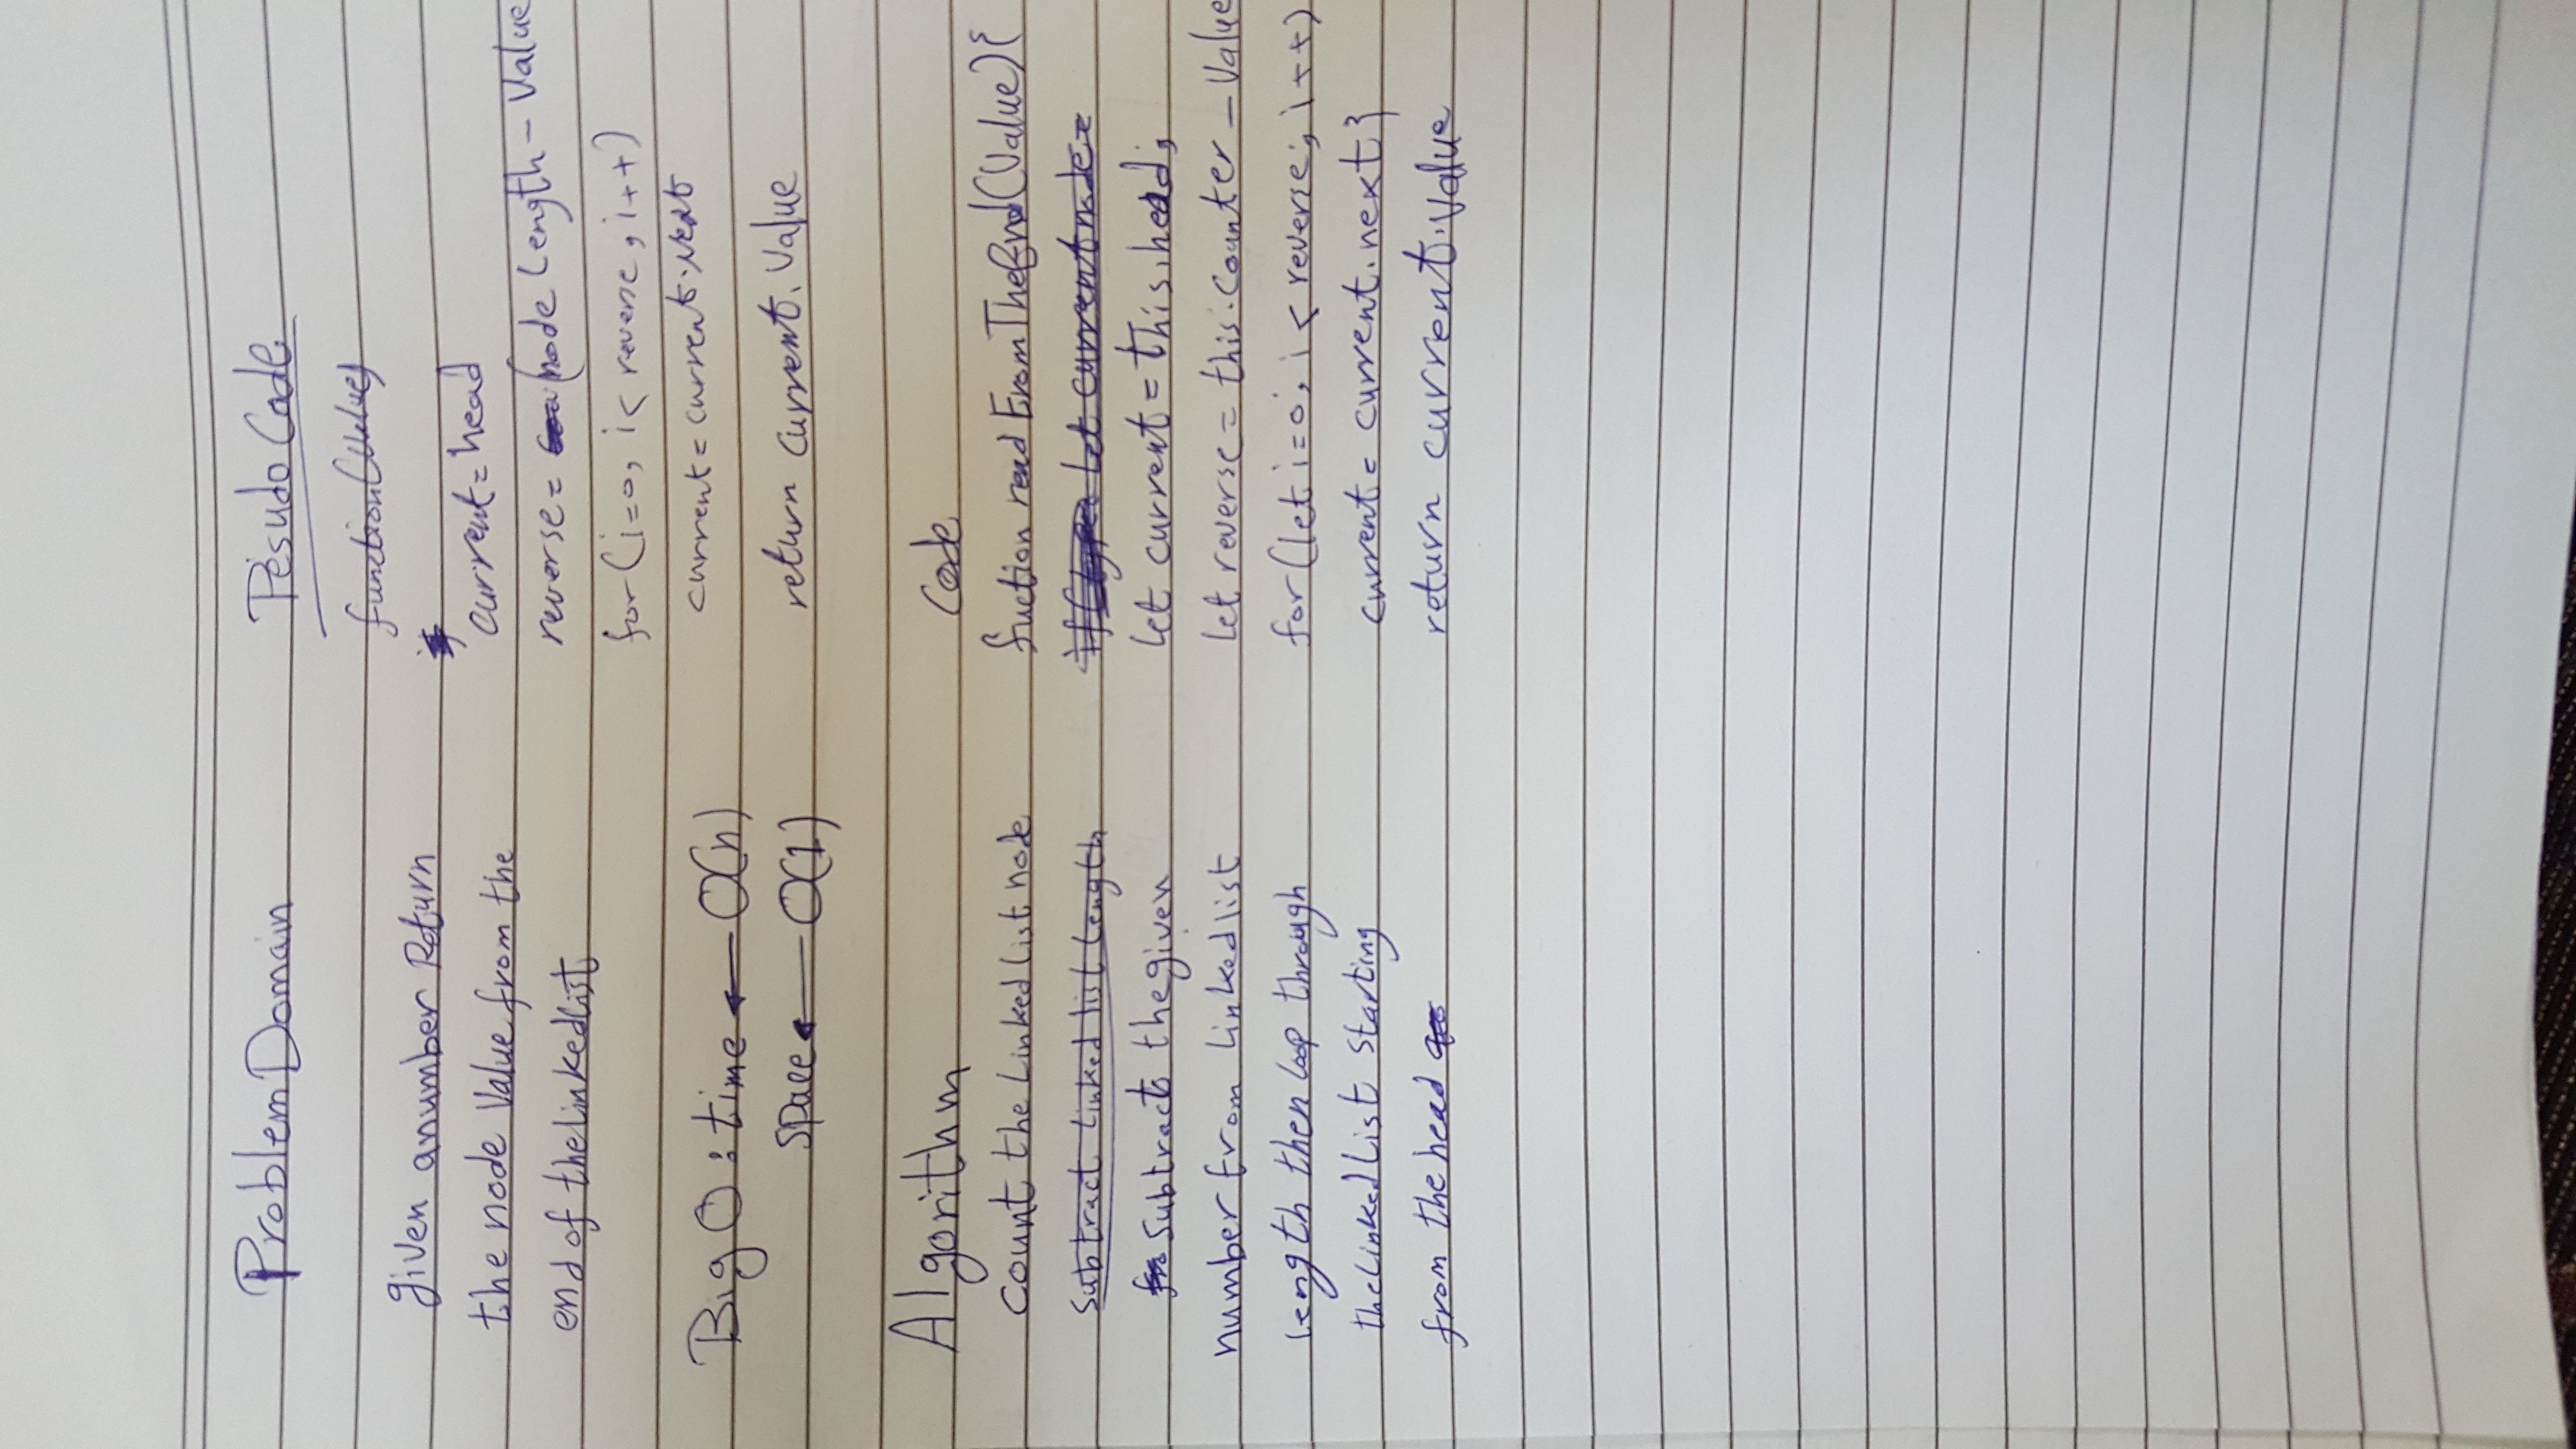 Problem Domain
given a number Return
the node Value from the
end of the linked list
Big O : time ← O(n)
space ← O(1)
Algorithm
Count the Linked list node
Subtract linked list length
Subtract the given
number from linked list
length then loop through
the linked List starting
from the head
Pesudo Code
function(Value)
current = head
reverse = (node length - Value
for (i=0, i < reverse, i++)
current = current.next
return current.Value
Code
fuction read FromTheEnd(Value){
let currentnode =
let current = this.head;
let reverse = this.counter - Value
for (let i=0; i < reverse; i++)
current = current.next }
return current.value